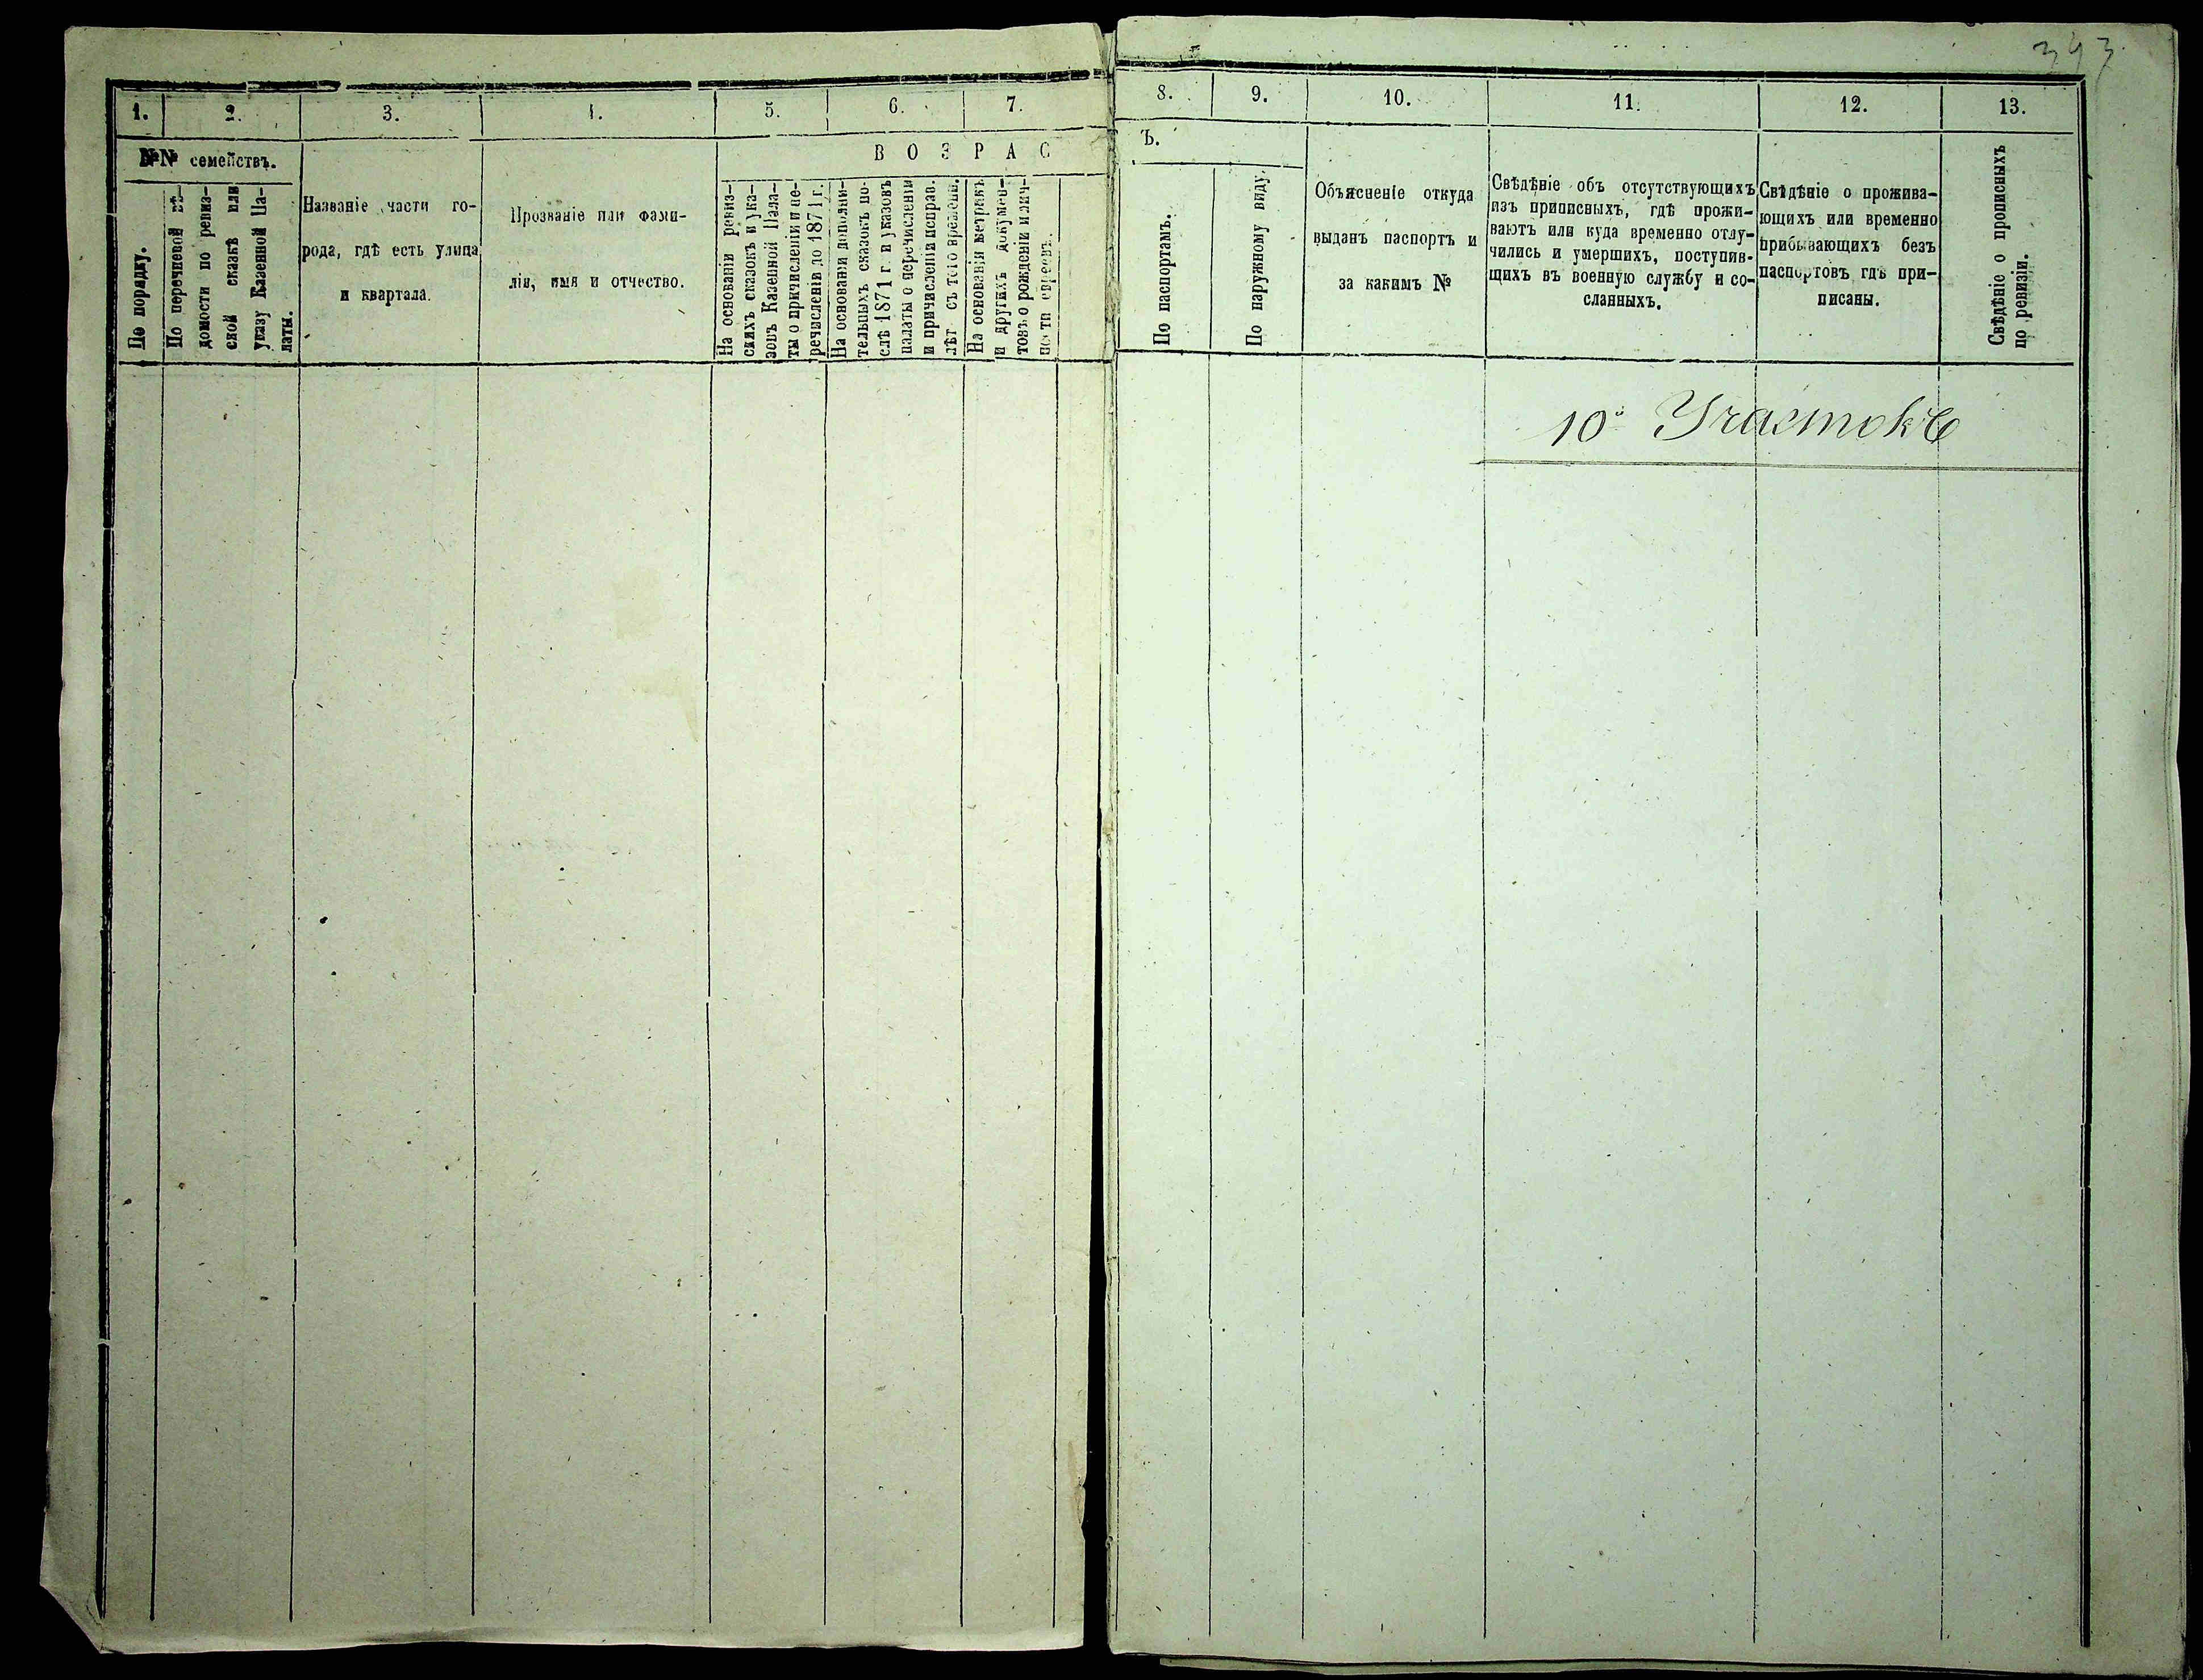 393.
1. 2. 3. 4. 5. 6. 7. 8. 9. 10. 11. 12. 13.
№№ семействъ.
В О З Р А С
Ъ.
По порядку.
По перечневой вѣ-
домости по ревиз-
ской сказкѣ или
указу Казенной Па-
латы.
Названіе части го-
рода, гдѣ есть улица
и квартала.
Прозваніе или фами-
лія, имя и отчество.
На основаніи ревиз-
скихъ сказокъ и ука-
зовъ Казенной Пала-
ты о причисленіи и пе-
речисленіи до 1871 г.
На основаніи дополни-
тельныхъ сказокъ по-
слѣ 1871 г. и указовъ
палаты о перечисленіи
и причисленіи и исправ.
лѣт съ того времени.
На основаніи метрикъ
и другихъ докумен-
товъ о рожденіи и лич-
ности евреевъ.
По паспортамъ.
По наружному виду.
Объясненіе откуда
выданъ паспортъ и
за какимъ №
Свѣдѣніе объ отсутствующихъ
изъ приписныхъ, гдѣ прожи-
ваютъ или куда временно отлу-
чились и умершихъ, поступив-
щихъ въ военную службу и со-
сланныхъ.
Свѣдѣніе о прожива-
ющихъ или временно
прибывающихъ безъ
паспортовъ гдѣ при-
писаны.
Свѣдѣніе о прописныхъ
по ревизіи.
10й Участокъ